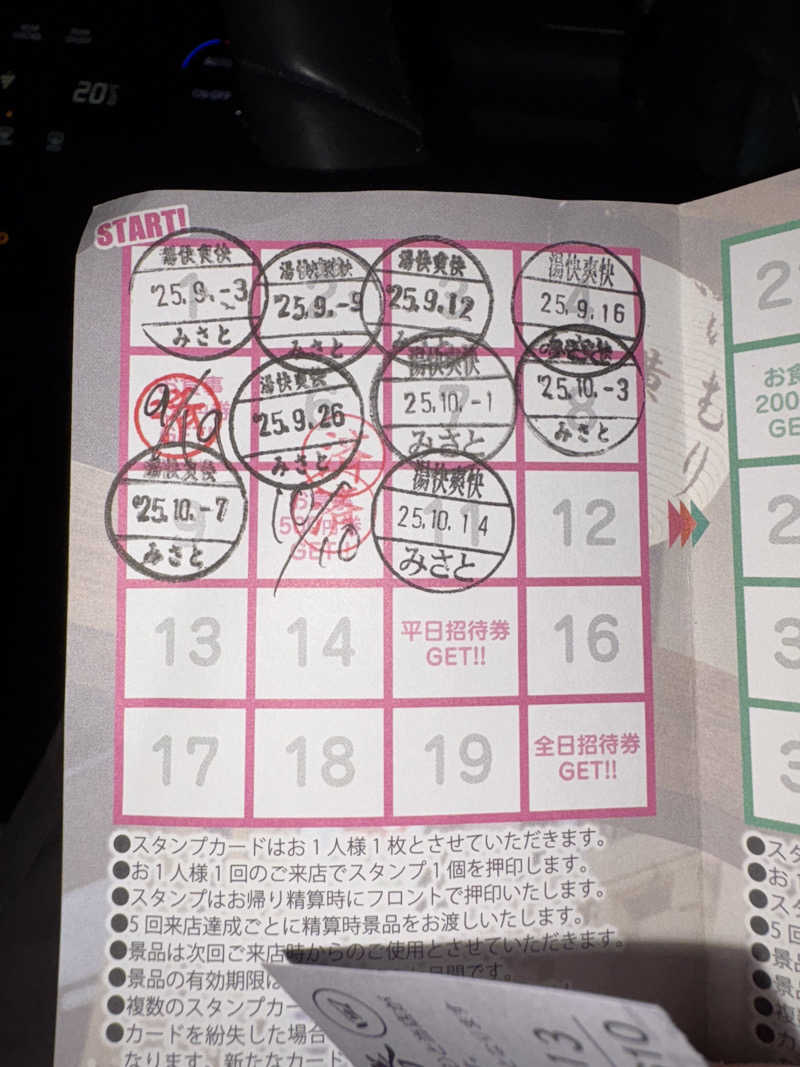 20
START!
湯快爽快 '25.9.-3 みさと
湯快爽快 '25.9.-9 みさと
湯快爽快 '25.9.12
湯快爽快 25.9.16
9/10
湯快爽快 '25.9.26 みさと
湯快爽快 25.10.-1 みさと
'25.10.-3 みさと
湯快爽快 '25.10.-7 みさと
10/10
湯快爽快 25.10.14 みさと
12
13
14
平日招待券
GET!!
16
17
18
19
全日招待券
GET!!
●スタンプカードはお1人様1枚とさせていただきます。
●お1人様1回のご来店でスタンプ1個を押印します。
●スタンプはお帰り精算時にフロントで押印いたします。
●5回来店達成ごとに精算時景品をお渡しいたします。
●景品は次回ご来店時からのご使用とさせていただきます。
●景品の有効期限は
日間です。
●複数のスタンプカー
●カードを紛失した場合
なります。新たなカード
お食
200
GE